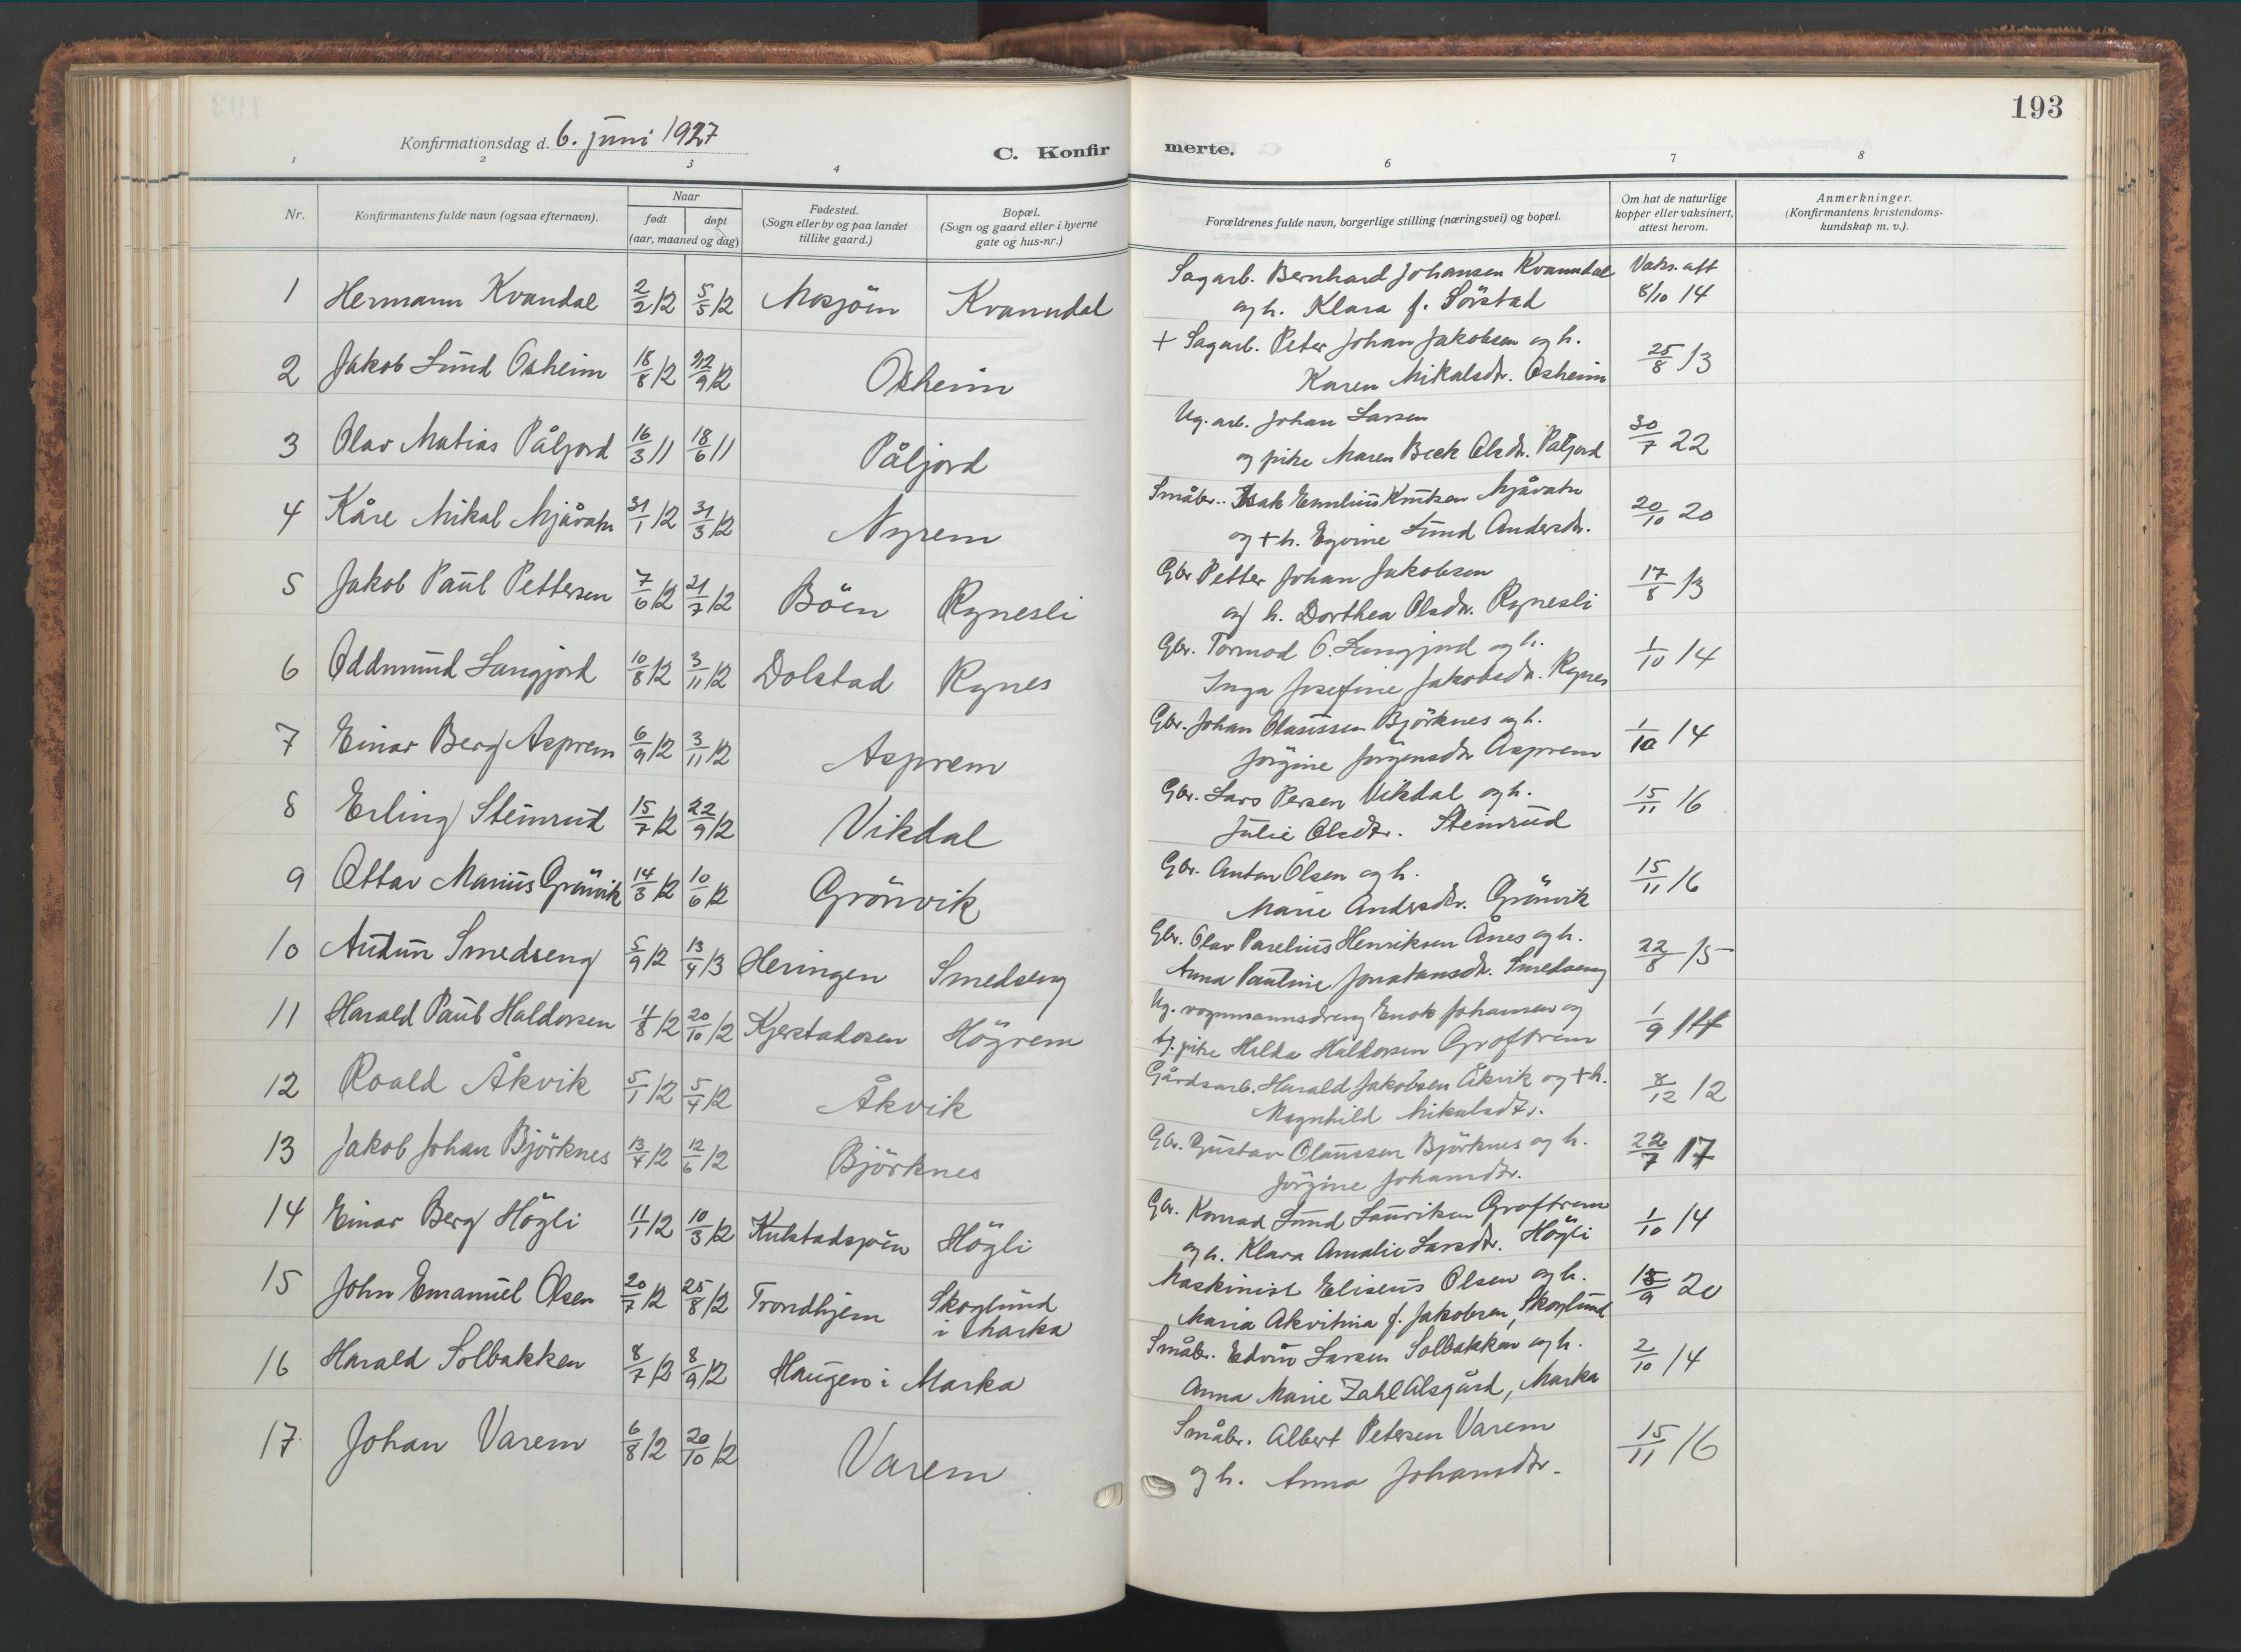 193
Konfirmationsdag d. 6. juni 1927
C. Konfir merte.
1 2 3 4 6 7 8
Nr.
Konfirmantens fulde navn (ogsaa efternavn).
Naar
født døpt
(aar, maaned og dag)
Fødested.
(Sogn eller by og paa landet
tillike gaard.)
Bopæl.
(Sogn og gaard eller i byerne
gate og hus-nr.)
Forældrenes fulde navn, borgerlige stilling (næringsvei) og bopæl.
Om hat de naturlige
kopper eller vaksinert,
attest herom.
Anmerkninger.
(Konfirmantens kristendoms-
kundskap m. v.).
1 Hermann Kvandal 2/2 12 5/5 12 Mosjöen Kvanndal
Sagarb. Bernhard Johansen Kvanndal Vaks. att
og h. Klara f. Sörstad 8/10 14
2 Jakob Lund Osheim 18/8 12 22/9 12 Osheim
+ Sagarb. Peter Johan Jakobsen og h. 25/8 13
Karen Mikalsdtr. Osheim
3 Olav Matias Påljord 16/3 11 18/6 11 Påljord
Ug. arb. Johan Larsen 30/7 22
og pike Maren Beck Olsdtr. Påljord
4 Kåre Mikal Mjåvatn 31/1 12 31/3 12 Nyrem
Småbr. Isak Emilius Knutsen Mjåvatn 20/10 20
og + h. Egvine Lund Andersdtr.
5 Jakob Paul Pettersen 7/6 12 21/7 12 Böen Rynesli
Gbr Petter Johan Jakobsen 17/8 13
og h. Dorthea Olsdtr. Rynesli
6 Oddmund Langjord 10/8 12 3/11 12 Dolstad Rynes
Gbr. Tormod O. Langjord og h. 1/10 14
Inga Josefine Jakobsdtr. Rynes
7 Einar Berg Asprem 6/9 12 3/11 12 Asprem
Gbr. Johan Olaussen Björknes og h. 1/10 14
Jörgine Jörgensdtr Asprem
8 Erling Steinrud 15/7 12 22/9 12 Vikdal
Gbr. Lars Persen Vikdal og h. 15/11 16
Julie Olsdtr. Steinrud
9 Ottar Marius Grönvik 14/3 12 10/6 12 Grönvik
Gbr. Anton Olsen og h. 15/11 16
Marie Andersdtr. Grönvik
10 Audun Smedseng 5/9 12 13/4 13 Heringen Smedseng
Gbr. Olav Parelius Henriksen Ånes og h. 22/8 15
Anna Pauline Jonatansdtr. Smedseng
11 Harald Paul Haldorsen 4/8 12 20/10 12 Kjerstadosen Högrem
Ug. vognmannsdreng Enok Johansen og 1/9 14
tj. pike Hilda Haldorsen Groftrem
12 Roald Åkvik 5/1 12 5/4 12 Åkvik
Gårdsarb. Harald Jakobsen Åkvik og + h. 8/12 12
Magnhild Mikalsdtr.
13 Jakob Johan Björknes 13/4 12 12/6 12 Björknes
Gbr. Gustav Olaussen Björknes og h. 22/7 17
Jörgine Johansdtr.
14 Einar Berg Högli 11/1 12 10/3 12 Kulstadsjöen Högli
Gbr. Konrad Lund Lauritsen Groftrem 1/10 14
og h. Klara Amalie Larsdtr. Högli
15 John Emanuel Olsen 20/7 12 25/8 12 Trondhjem Skoglund
i Marka
Maskinist Eliseus Olsen og h. 15/9 20
Maria Akvilina f. Jakobsen, Skoglund
16 Harald Solbakken 8/7 12 8/9 12 Haugen i Marka
Småbr. Edvin Larsen Solbakken og h. 2/10 14
Anna Marie Zahl Alsgård, Marka
17 Johan Varem 6/8 12 20/10 12 Varem
Småbr. Albert Petersen Varem 15/11 16
og h. Anna Johansdtr.